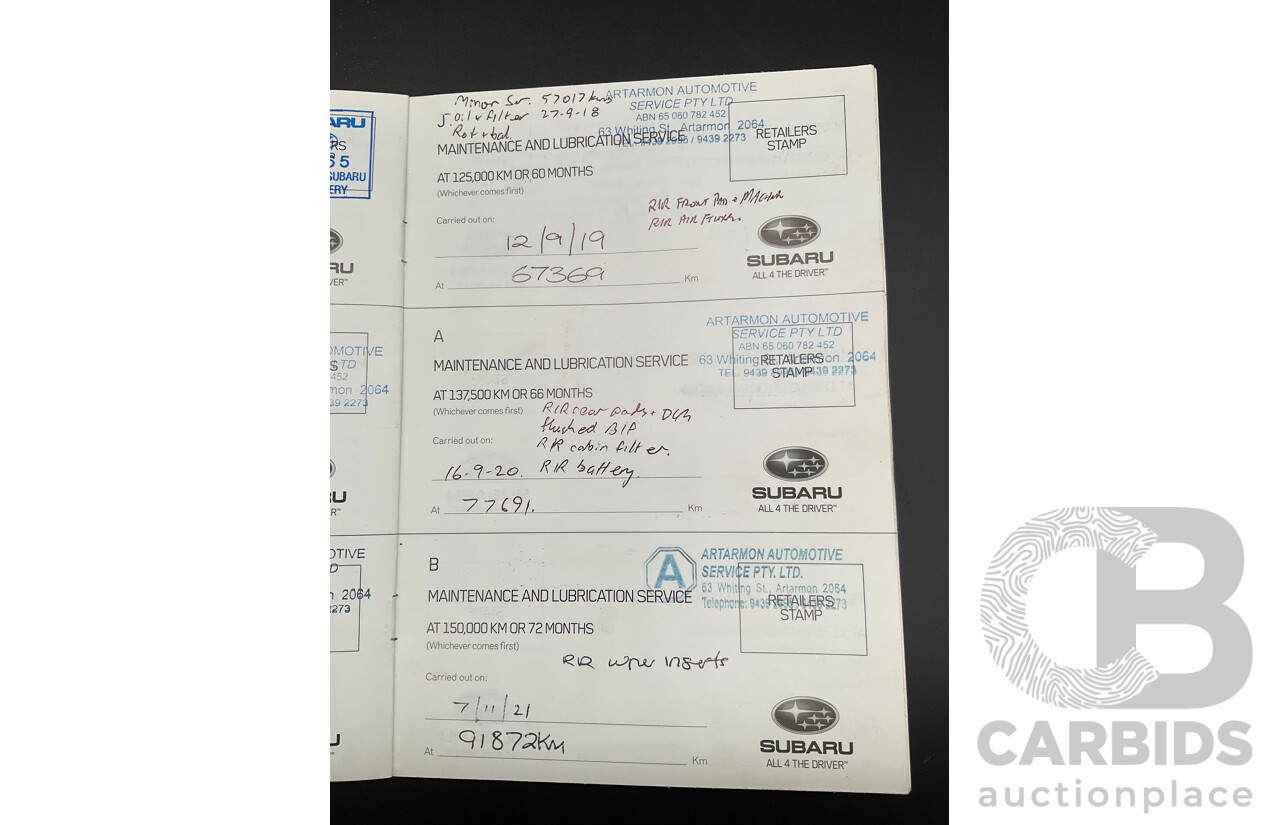 Minor Ser. 57017kms
Oil + filter 27-9-18
Rot + bal
ARTARMON AUTOMOTIVE
SERVICE PTY LTD
ABN 65 060 782 452
63 Whiting St. Artarmon 2064
TEL. 9439 / 9439 2273
RETAILERS
STAMP
MAINTENANCE AND LUBRICATION SERVICE
AT 125,000 KM OR 60 MONTHS
(Whichever comes first)
R/R FRONT PAD +
R/R AIR
Carried out on:
12/9/19
At 67369 Km
SUBARU
ALL 4 THE DRIVER™
A
ARTARMON AUTOMOTIVE
SERVICE PTY LTD
ABN 65 060 782 452
63 Whiting St. Artarmon 2064
TEL. 9439 / 9439 2273
RETAILERS
STAMP
MAINTENANCE AND LUBRICATION SERVICE
AT 137,500 KM OR 66 MONTHS
(Whichever comes first)
R/R rear pads +
flushed B/F
Carried out on:
R/R cabin filter.
16-9-20. R/R battery.
At 77691. Km
SUBARU
ALL 4 THE DRIVER™
B
A
ARTARMON AUTOMOTIVE
SERVICE PTY. LTD.
63 Whiting St., Artarmon 2064
Telephone: 9439 / 9439 2273
RETAILERS
STAMP
MAINTENANCE AND LUBRICATION SERVICE
AT 150,000 KM OR 72 MONTHS
(Whichever comes first)
R/R wiper inserts
Carried out on:
7/11/21
At 91872Km Km
SUBARU
ALL 4 THE DRIVER™
CB
CARBIDS
auctionplace